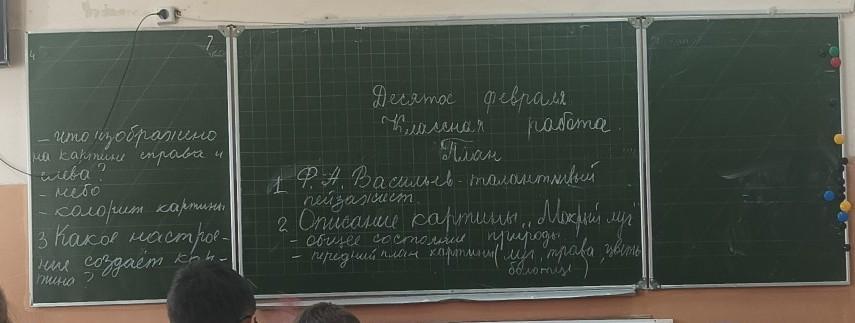 Десятое февраля
Классная работа.
План
1. Ф. А. Васильев - талантливый
пейзажист.
2. Описание картины „Мокрый луг"
- общее состояние природы
- передний план картины (луг, трава, цветы
болотце)
- что изображено
на картине справа и
слева?
- небо
- колорит картины
3. Какое настрое-
ние создаёт кар-
тина?